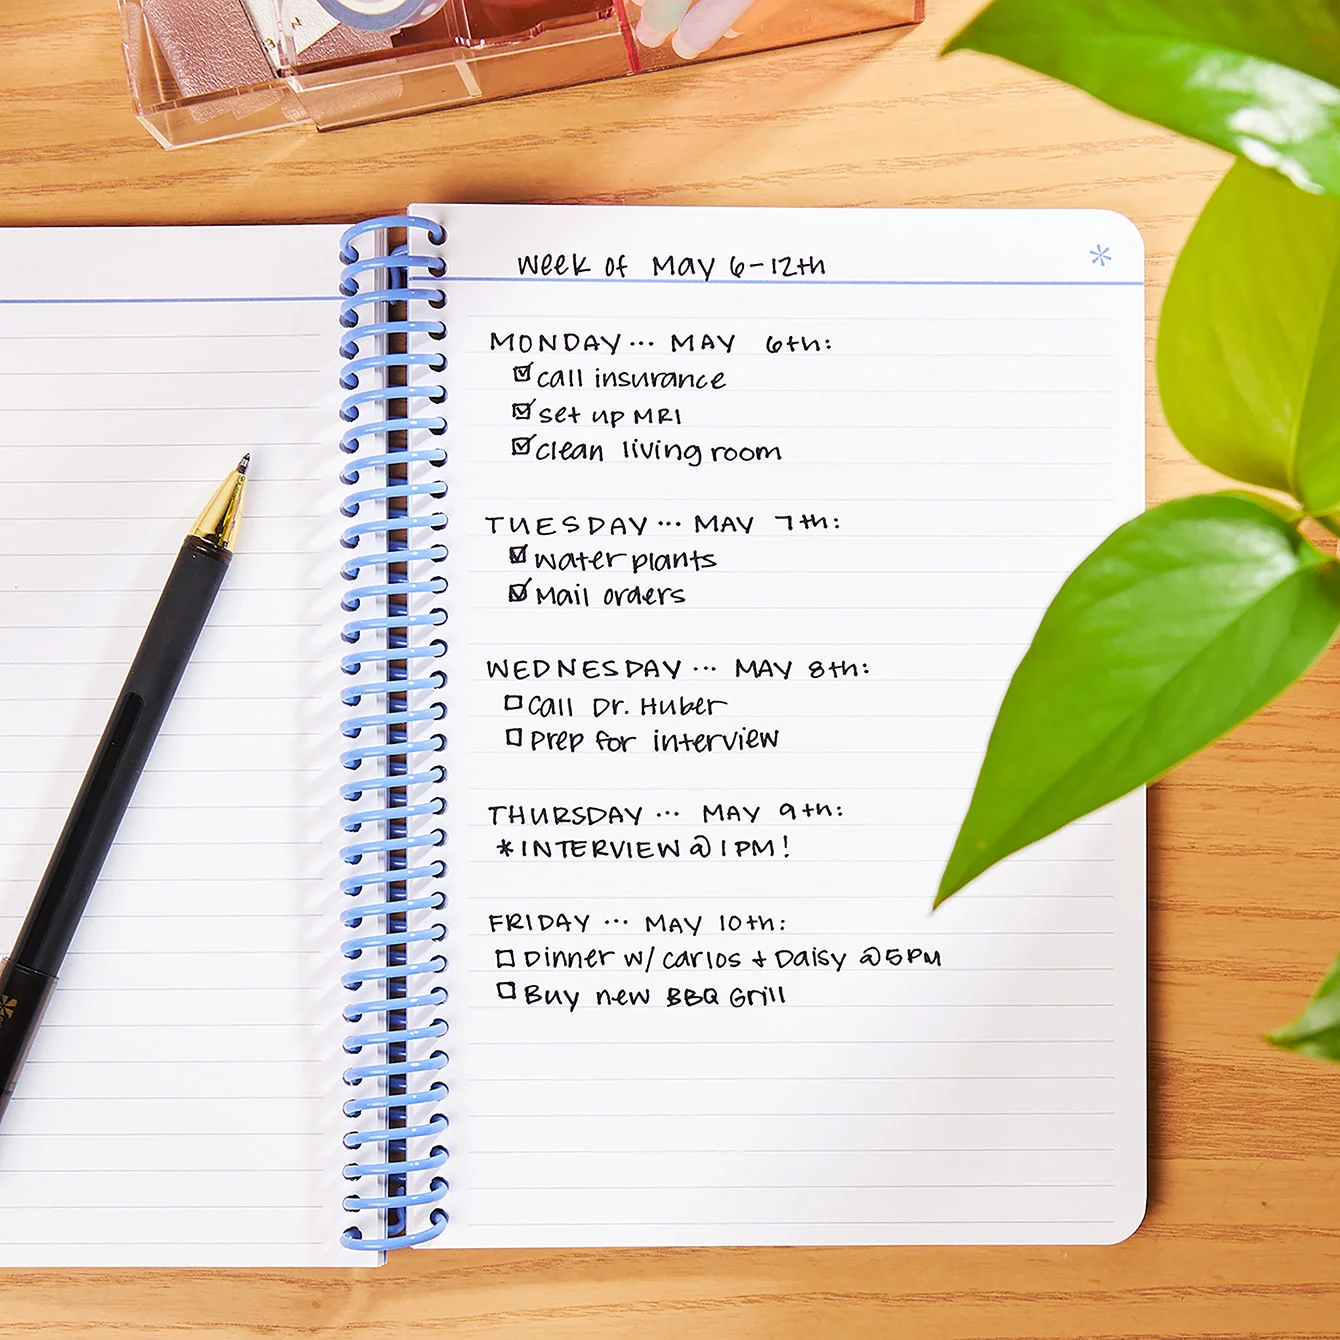 Week of May 6-12th
MONDAY... MAY 6th:
☑ call insurance
☑ set up MRI
☑ clean living room
TUESDAY... MAY 7th:
☑ water plants
☑ Mail orders
WEDNESDAY... MAY 8th:
☐ Call Dr. Huber
☐ Prep for interview
THURSDAY... MAY 9th:
*INTERVIEW @ 1 PM!
FRIDAY... MAY 10th:
☐ Dinner w/ carlos + Daisy @ 5PM
☐ Buy new BBQ Grill